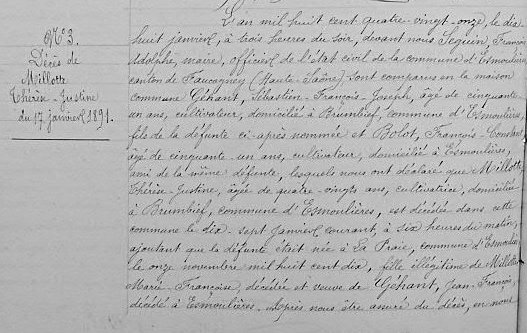 N°3.
Décès de
Millotte
Thérèse-Justine
du 17 janvier 1891.
L'an mil huit cent quatre-vingt-onze, le dix
huit janvier, à trois heures du soir, devant nous Sequin, François
Adolphe, maire, officier de l'état civil de la commune d'Esmoulières
canton de Faucogney (Haute-Saône) sont comparus en la maison
commune Géhant, Sébastien-François-Joseph, âgé de cinquante
un ans, cultivateur, domicilié à Brumbief, commune d'Esmoulières,
fils de la défunte ci-après nommée et Bolot, François-Constant
âgé de cinquante-un ans, cultivateur, domicilié à Esmoulières,
ami de la même défunte, lesquels nous ont déclaré que Millotte
Thérèse-Justine, âgée de quatre-vingts ans, cultivatrice, domiciliée
à Brumbief, commune d'Esmoulières, est décédée dans cette
commune le dix-sept janvier courant, à six heures du matin,
ajoutant que la défunte était née à La Praie, commune d'Esmoulières
le onze novembre mil huit cent dix, fille illégitime de Millotte
Marie-Françoise, décédée et veuve de Géhant, Jean-François,
décédé à Esmoulières. Après nous être assuré du décès, en nous